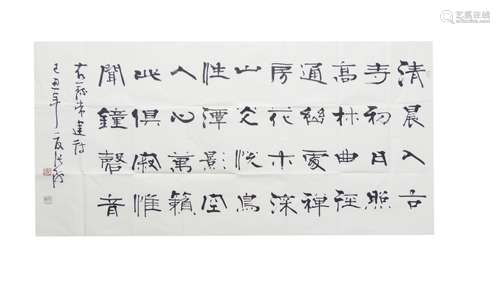 清晨入古
寺初日照
高林曲徑
通幽處禪
房花木深
山光悦鳥
性潭影空
人心萬籟
此俱寂惟
聞鐘磬音
常建詩
己丑年